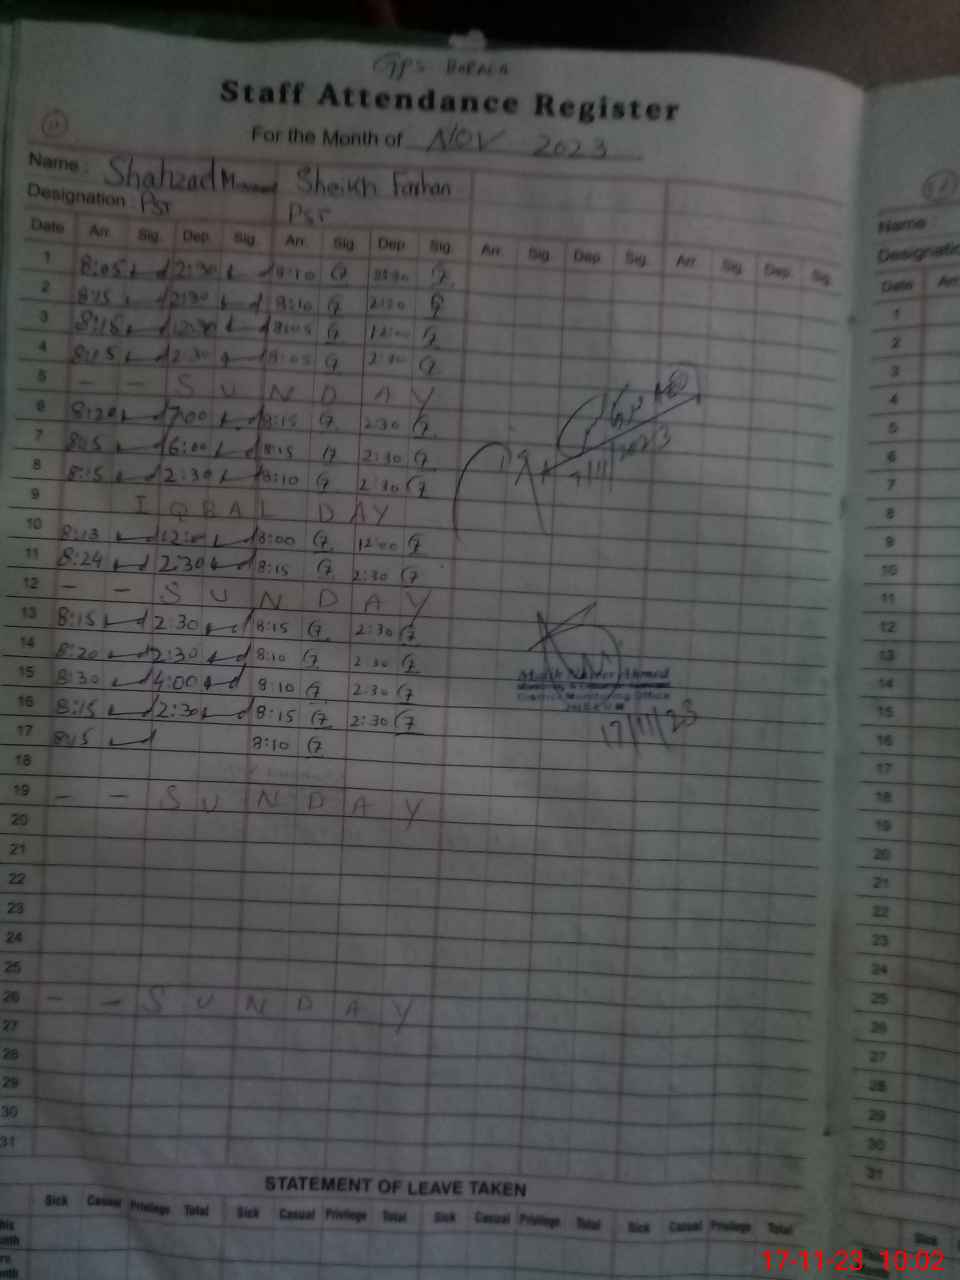 GPS
Staff Attendance Register
For the Month of NOV 2023
Name : Shahzad Sheikh Farhan
Designation : PST PST
Date Arr. Sig. Dep. Sig. Arr. Sig. Dep. Sig. Arr. Sig. Dep. Sig. Arr. Sig. Dep. Sig.
1 8:05 2:30 8:10
2 8:15 2:30 8:10 2:30
3 8:15 8:05 12:00
4 8:15 2:30 8:05 2:30
5 - - S U N D A Y
6 8:20 7:00 8:15 2:30
7 6:00 8:15 2:30
8 8:15 2:30 8:10 2:30
9 I Q B A L D A Y
10 8:13 8:00 12:00
11 8:24 2:30 8:15 2:30
12 - - S U N D A Y
13 8:15 2:30 8:15 2:30
14 8:20 2:30 8:10 2:30
15 8:30 4:00 8:10 2:30
16 8:15 2:30 8:15 2:30
17 8:15 8:10
18
19 - - S U N D A Y
20
21
22
23
24
25
26 - - S U N D A Y
27
28
29
30
31
2023
Ahmed
District Monitoring Office
17/11/23
STATEMENT OF LEAVE TAKEN
Sick Casual Privilege Total Sick Casual Privilege Total Sick Casual Privilege Total Sick Casual Privilege Total
Name
Date Arr
1
2
3
4
5
6
7
8
9
10
11
12
13
14
15
16
17
18
19
20
21
22
23
24
25
26
27
28
29
30
31
Sick
17-11-23 10:02